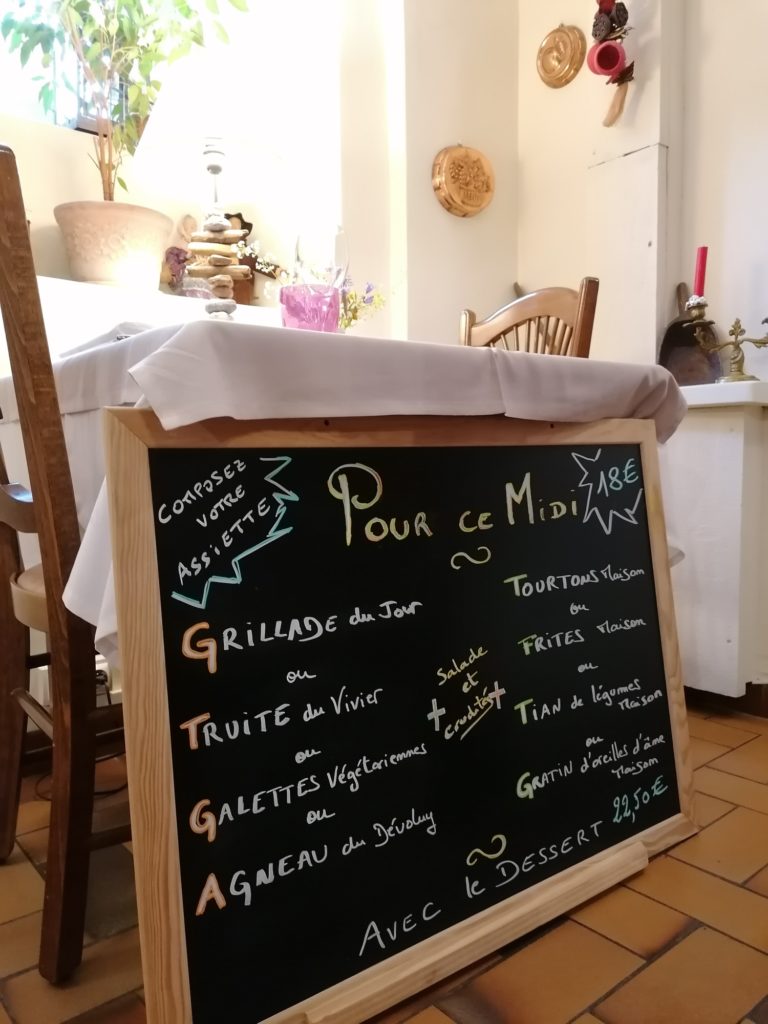 COMPOSEZ
VOTRE
ASSIETTE
POUR CE MIDI
18€
GRILLADE du Jour
ou
TRUITE du Vivier
ou
GALETTES Végétariennes
ou
AGNEAU du Dévoluy
+ Salade
et
Crudités +
TOURTONS Maison
ou
FRITES Maison
ou
TIAN de légumes
Maison
ou
GRATIN d'oreilles d'âme
Maison
AVEC le DESSERT 22,50€